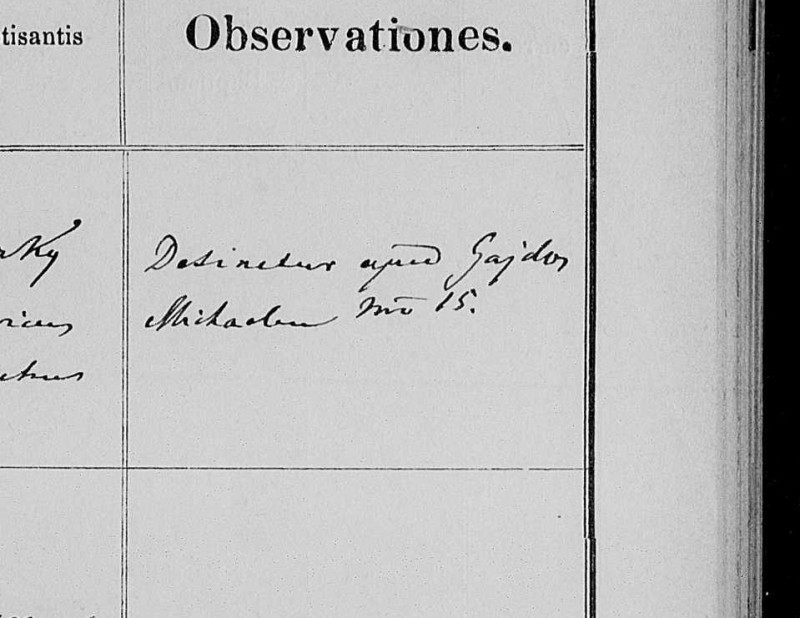 tisantis
Observationes.
Detinetur apud Gajdos
Michaelem nro 15.